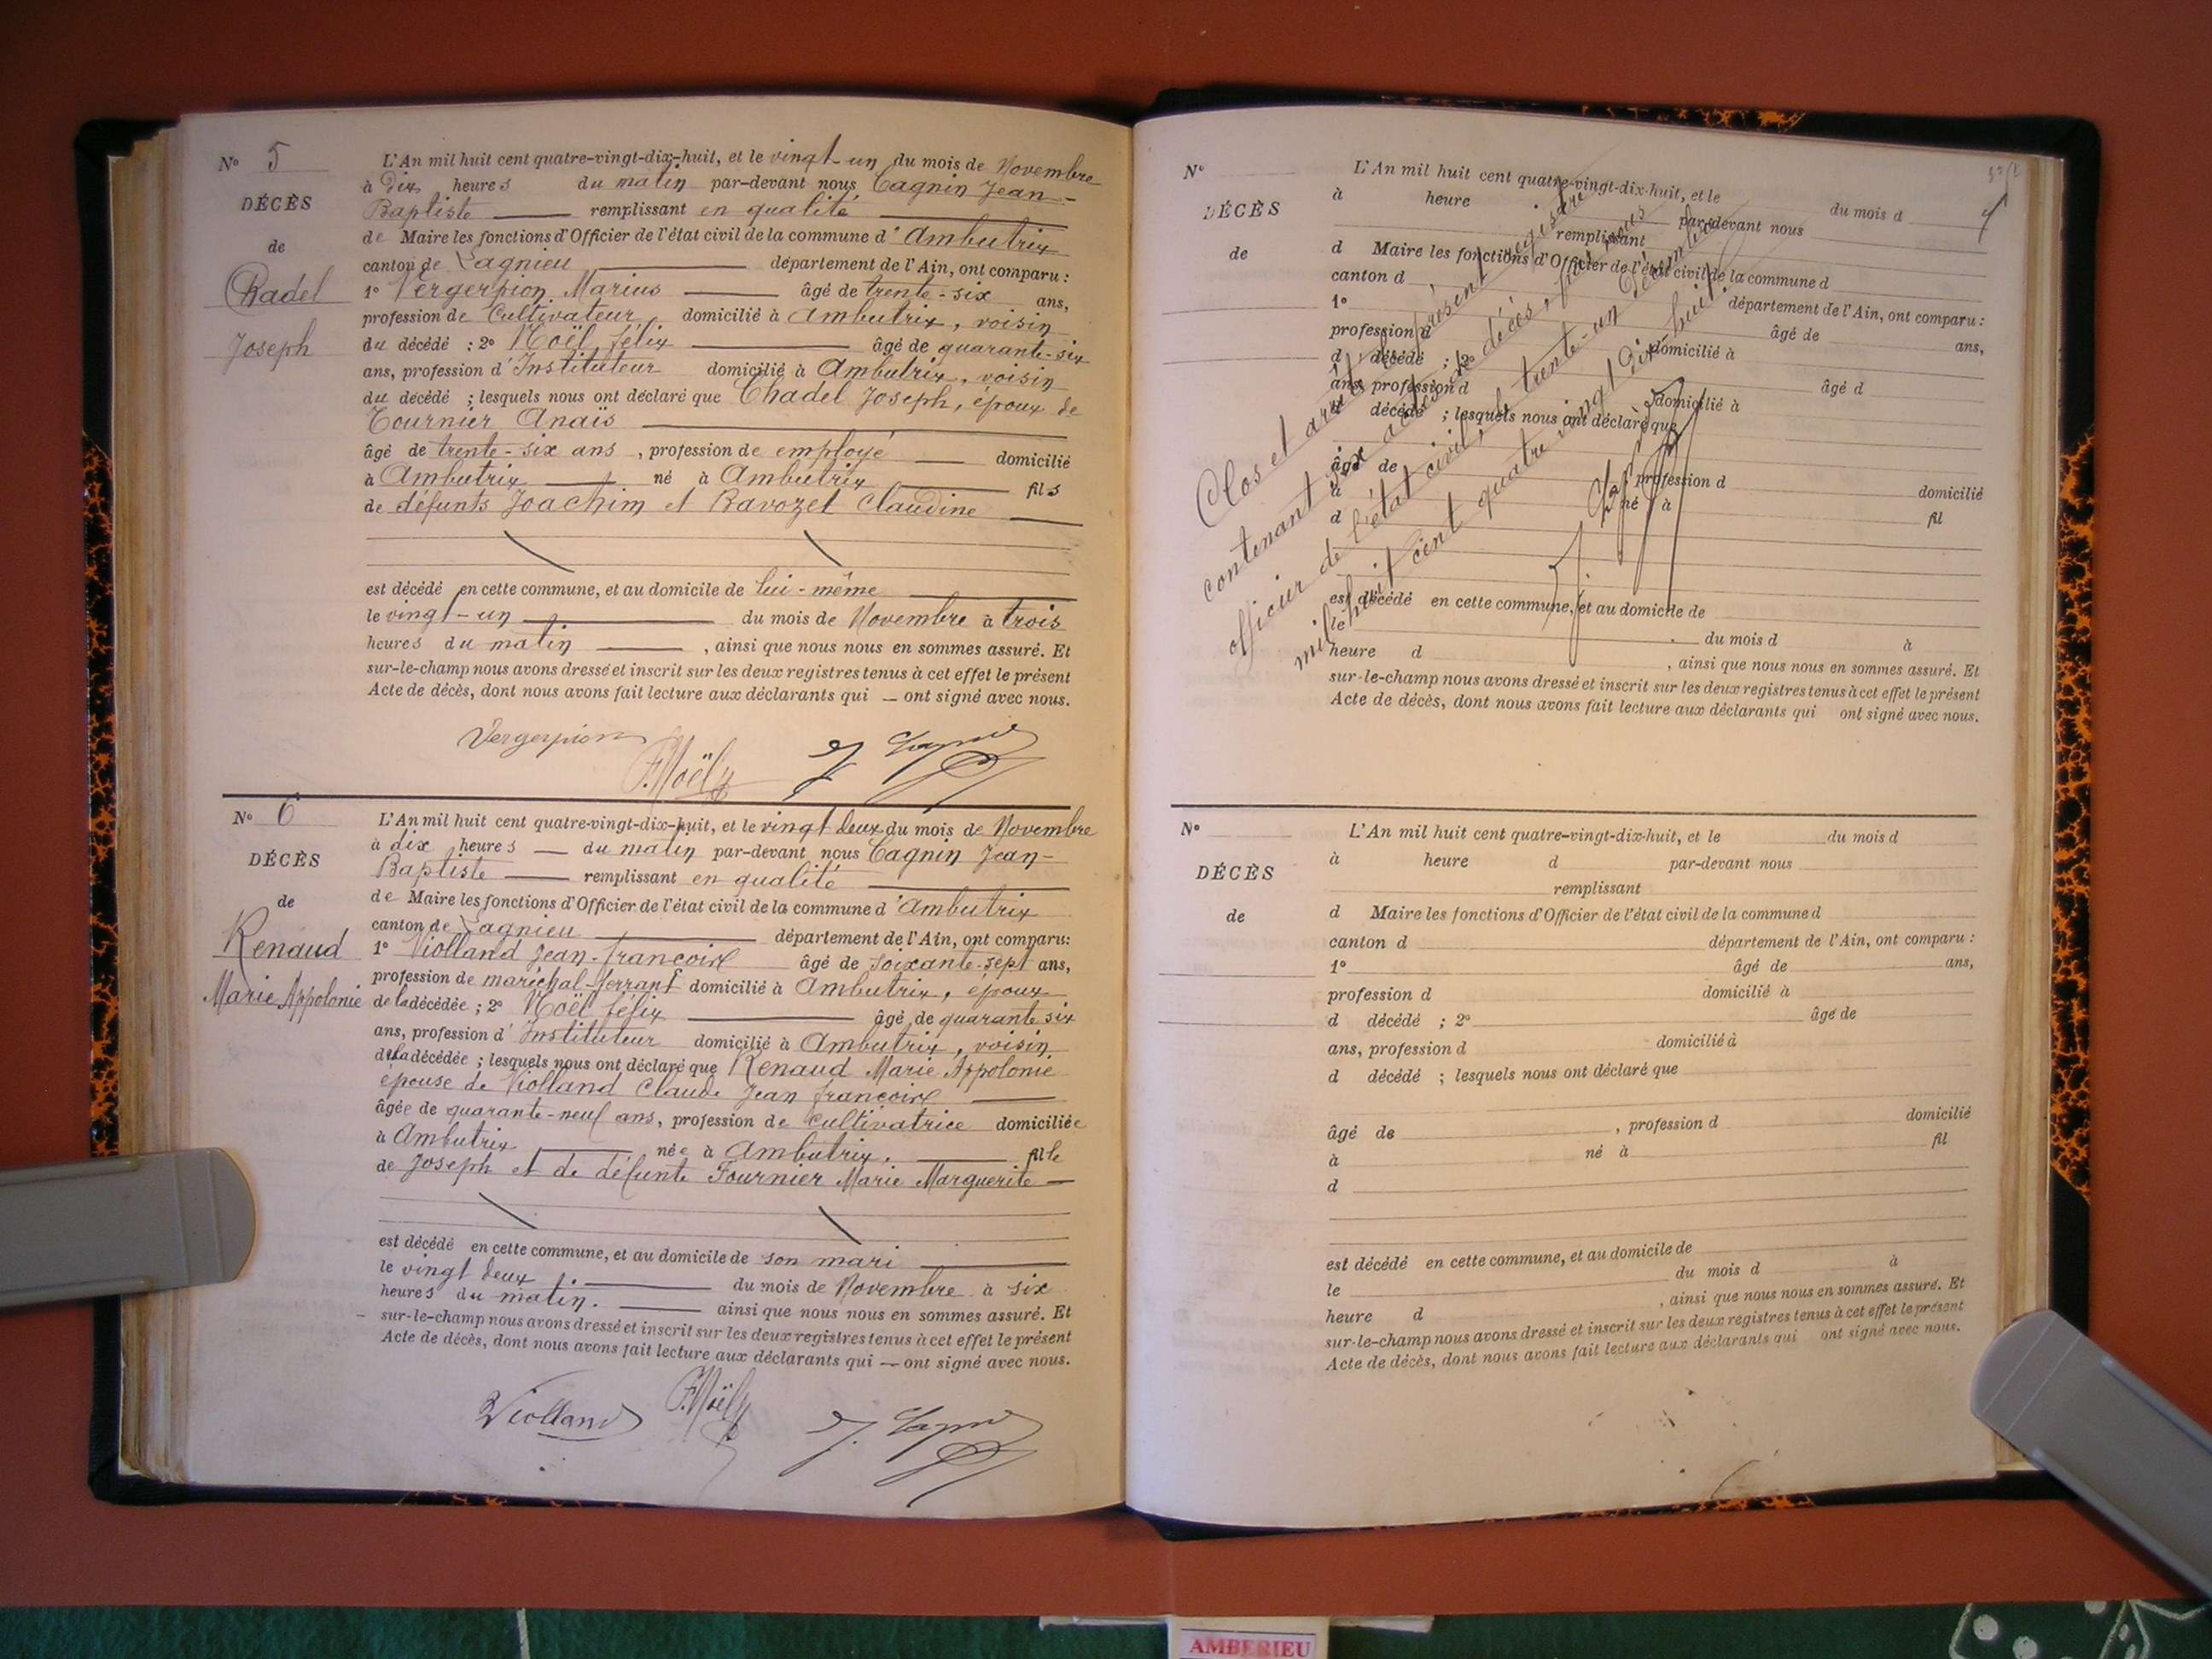 N° 5
DÉCÈS
de
Chadel
Joseph
L'An mil huit cent quatre-vingt-dix-huit, et le vingt-un du mois de Novembre
à Dix heures du matin par-devant nous Cagnin Jean-
Baptiste remplissant en qualité
de Maire les fonctions d'Officier de l'état civil de la commune d'Ambutrix
canton de Lagnieu département de l'Ain, ont comparu :
1° Vergerpion Marius âgé de trente-six ans,
profession de Cultivateur domicilié à Ambutrix, voisin
du décédé ; 2° Noël félix âgé de quarante-six
ans, profession d'Instituteur domicilié à Ambutrix, voisin
du décédé ; lesquels nous ont déclaré que Chadel Joseph, époux de
Tournier Anaïs
âgé de trente-six ans, profession de employé domicilié
à Ambutrix né à Ambutrix fils
de défunts Joachim et Ravozet Claudine
est décédé en cette commune, et au domicile de lui-même
le vingt-un du mois de Novembre à trois
heures du matin, ainsi que nous nous en sommes assuré. Et
sur-le-champ nous avons dressé et inscrit sur les deux registres tenus à cet effet le présent
Acte de décès, dont nous avons fait lecture aux déclarants qui — ont signé avec nous.
Vergerpion
F. Noël J. Cagnin
N° 6
DÉCÈS
de
Renaud
Marie Appolonie
L'An mil huit cent quatre-vingt-dix-huit, et le vingt deux du mois de Novembre
à dix heures — du matin par-devant nous Cagnin Jean-
Baptiste remplissant en qualité
de Maire les fonctions d'Officier de l'état civil de la commune d'Ambutrix
canton de Lagnieu département de l'Ain, ont comparu :
1° Violland Jean-francois âgé de soixante-sept ans,
profession de maréchal-ferrant domicilié à Ambutrix, époux
de la décédée ; 2° Noël félix âgé de quarante six
ans, profession d'Instituteur domicilié à Ambutrix, voisin
de la décédée ; lesquels nous ont déclaré que Renaud Marie Appolonie
épouse de Violland Claude Jean francois
âgée de quarante-neuf ans, profession de cultivatrice domiciliée
à Ambutrix née à Ambutrix. fille
de Joseph et de défunte Fournier Marie Marguerite —
est décédé en cette commune, et au domicile de son mari
le vingt deux du mois de Novembre à six
heures du matin. ainsi que nous nous en sommes assuré. Et
sur-le-champ nous avons dressé et inscrit sur les deux registres tenus à cet effet le présent
Acte de décès, dont nous avons fait lecture aux déclarants qui — ont signé avec nous.
Violland F. Noël J. Cagnin
N°
DÉCÈS
de
L'An mil huit cent quatre-vingt-dix-huit, et le du mois d
à heure par-devant nous
remplissant
d Maire les fonctions d'Officier de l'état civil de la commune d
canton d département de l'Ain, ont comparu :
1° âgé de ans,
profession d domicilié à
d décédé ; 2° âgé d
ans, profession d domicilié à
d décédé ; lesquels nous ont déclaré que
âgé de , profession d domicilié
à né à fil
d
est décédé en cette commune, et au domicile de
le du mois d à
heure d , ainsi que nous nous en sommes assuré. Et
sur-le-champ nous avons dressé et inscrit sur les deux registres tenus à cet effet le présent
Acte de décès, dont nous avons fait lecture aux déclarants qui ont signé avec nous.
Clos et arrêté le présent registre
contenant six actes de décès, par nous
officier de l'état civil, le trente-un Décembre
mil huit cent quatre vingt dix huit.
N°
DÉCÈS
de
L'An mil huit cent quatre-vingt-dix-huit, et le du mois d
à heure d par-devant nous
remplissant
d Maire les fonctions d'Officier de l'état civil de la commune d
canton d département de l'Ain, ont comparu :
1° âgé de ans,
profession d domicilié à
d décédé ; 2° âgé de
ans, profession d domicilié à
d décédé ; lesquels nous ont déclaré que
âgé de , profession d domicilié
à né à fil
d
est décédé en cette commune, et au domicile de
le du mois d à
heure d , ainsi que nous nous en sommes assuré. Et
sur-le-champ nous avons dressé et inscrit sur les deux registres tenus à cet effet le présent
Acte de décès, dont nous avons fait lecture aux déclarants qui ont signé avec nous.
AMBERIEU